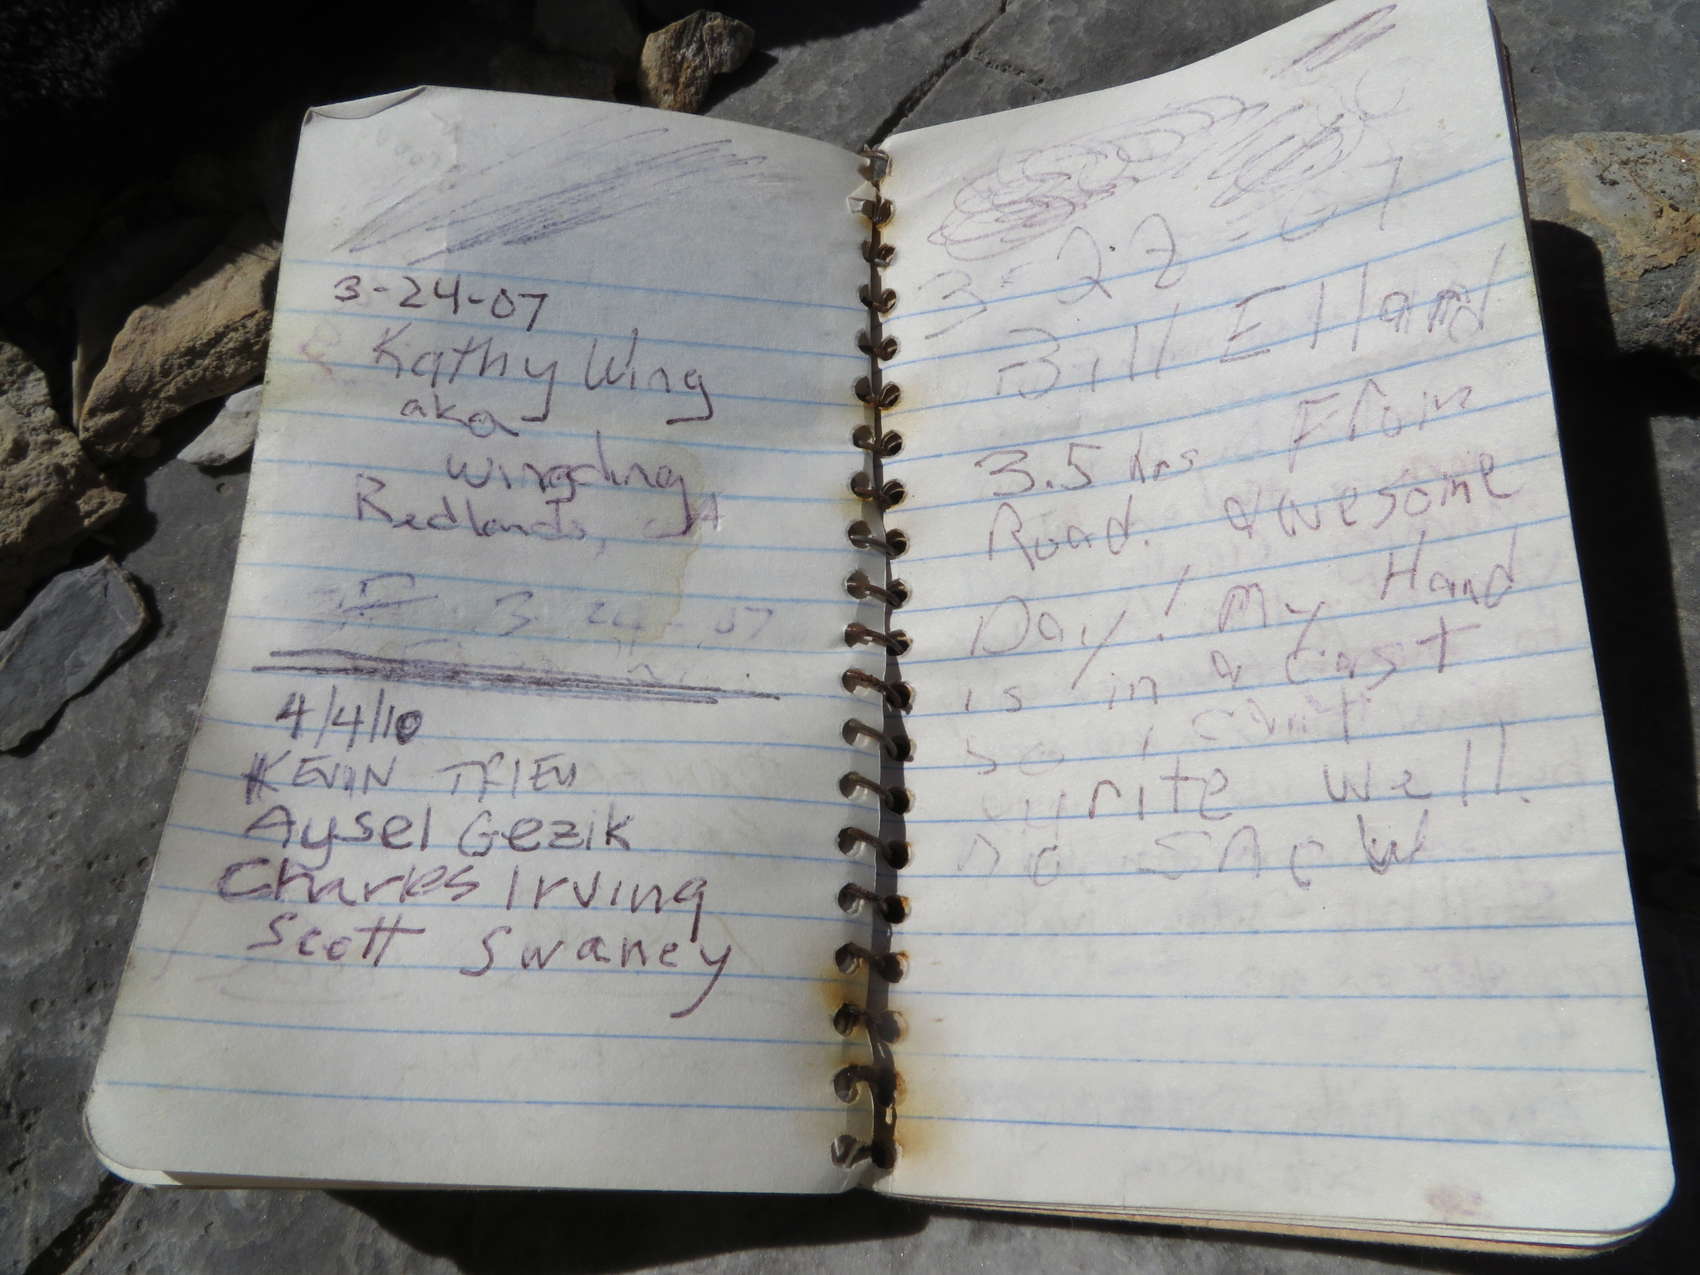 3-24-07
Kathy Wing
aka
wingding
Redlands, CA
3 24-07
4/4/10
KEVIN TRIEU
Aysel Gezik
Charles Irving
Scott Swaney
3-22-07
Bill Elland
3.5 hrs From
Road. awesome
Day! My Hand
is in a cast
so I can't
write well.
no